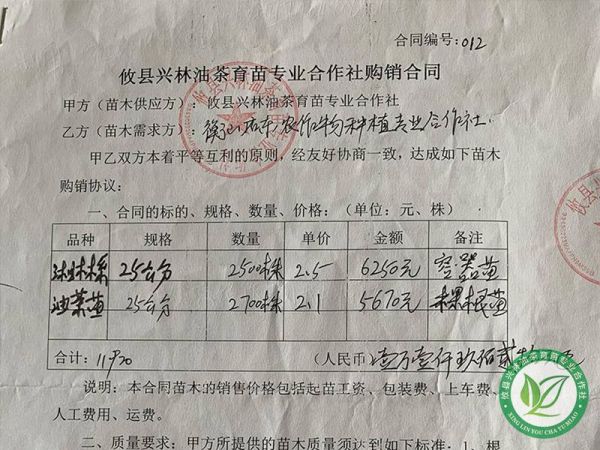 合同编号:012
攸县兴林油茶育苗专业合作社购销合同
甲方（苗木供应方）：攸县兴林油茶育苗专业合作社
乙方（苗木需求方）：农作物种植专业合作社
甲乙双方本着平等互利的原则，经友好协商一致，达成如下苗木
购销协议：
一、合同的标的、规格、数量、价格：（单位：元、株）
品种 规格 数量 单价 金额 备注
25公分 2500株 2.5 6250元 容器苗
油茶苗 25公分 2700株 2.1 5670元 裸根苗
合计：11920 （人民币）壹万壹仟玖佰贰
说明：本合同苗木的销售价格包括起苗工资、包装费、上车费、
人工费用、运费。
二、质量要求：甲方所提供的苗木质量须达到如下标准：1、根
攸县兴林油茶育苗专业合作社
XING LIN YOU CHA YU MIAO